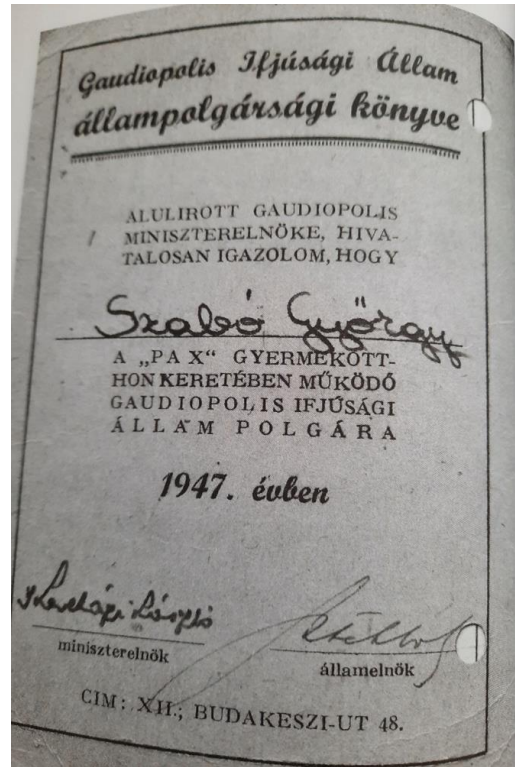 Gaudiopolis Ifjúsági Állam
állampolgársági könyve
ALULIROTT GAUDIOPOLIS
MINISZTERELNÖKE, HIVA-
TALOSAN IGAZOLOM, HOGY
Szabó György
A „PAX“ GYERMEKOTT-
HON KERETÉBEN MŰKÖDŐ
GAUDIOPOLIS IFJÚSÁGI
ÁLLAM POLGÁRA
1947. évben
László
miniszterelnök
államelnök
CIM: XII., BUDAKESZI-UT 48.